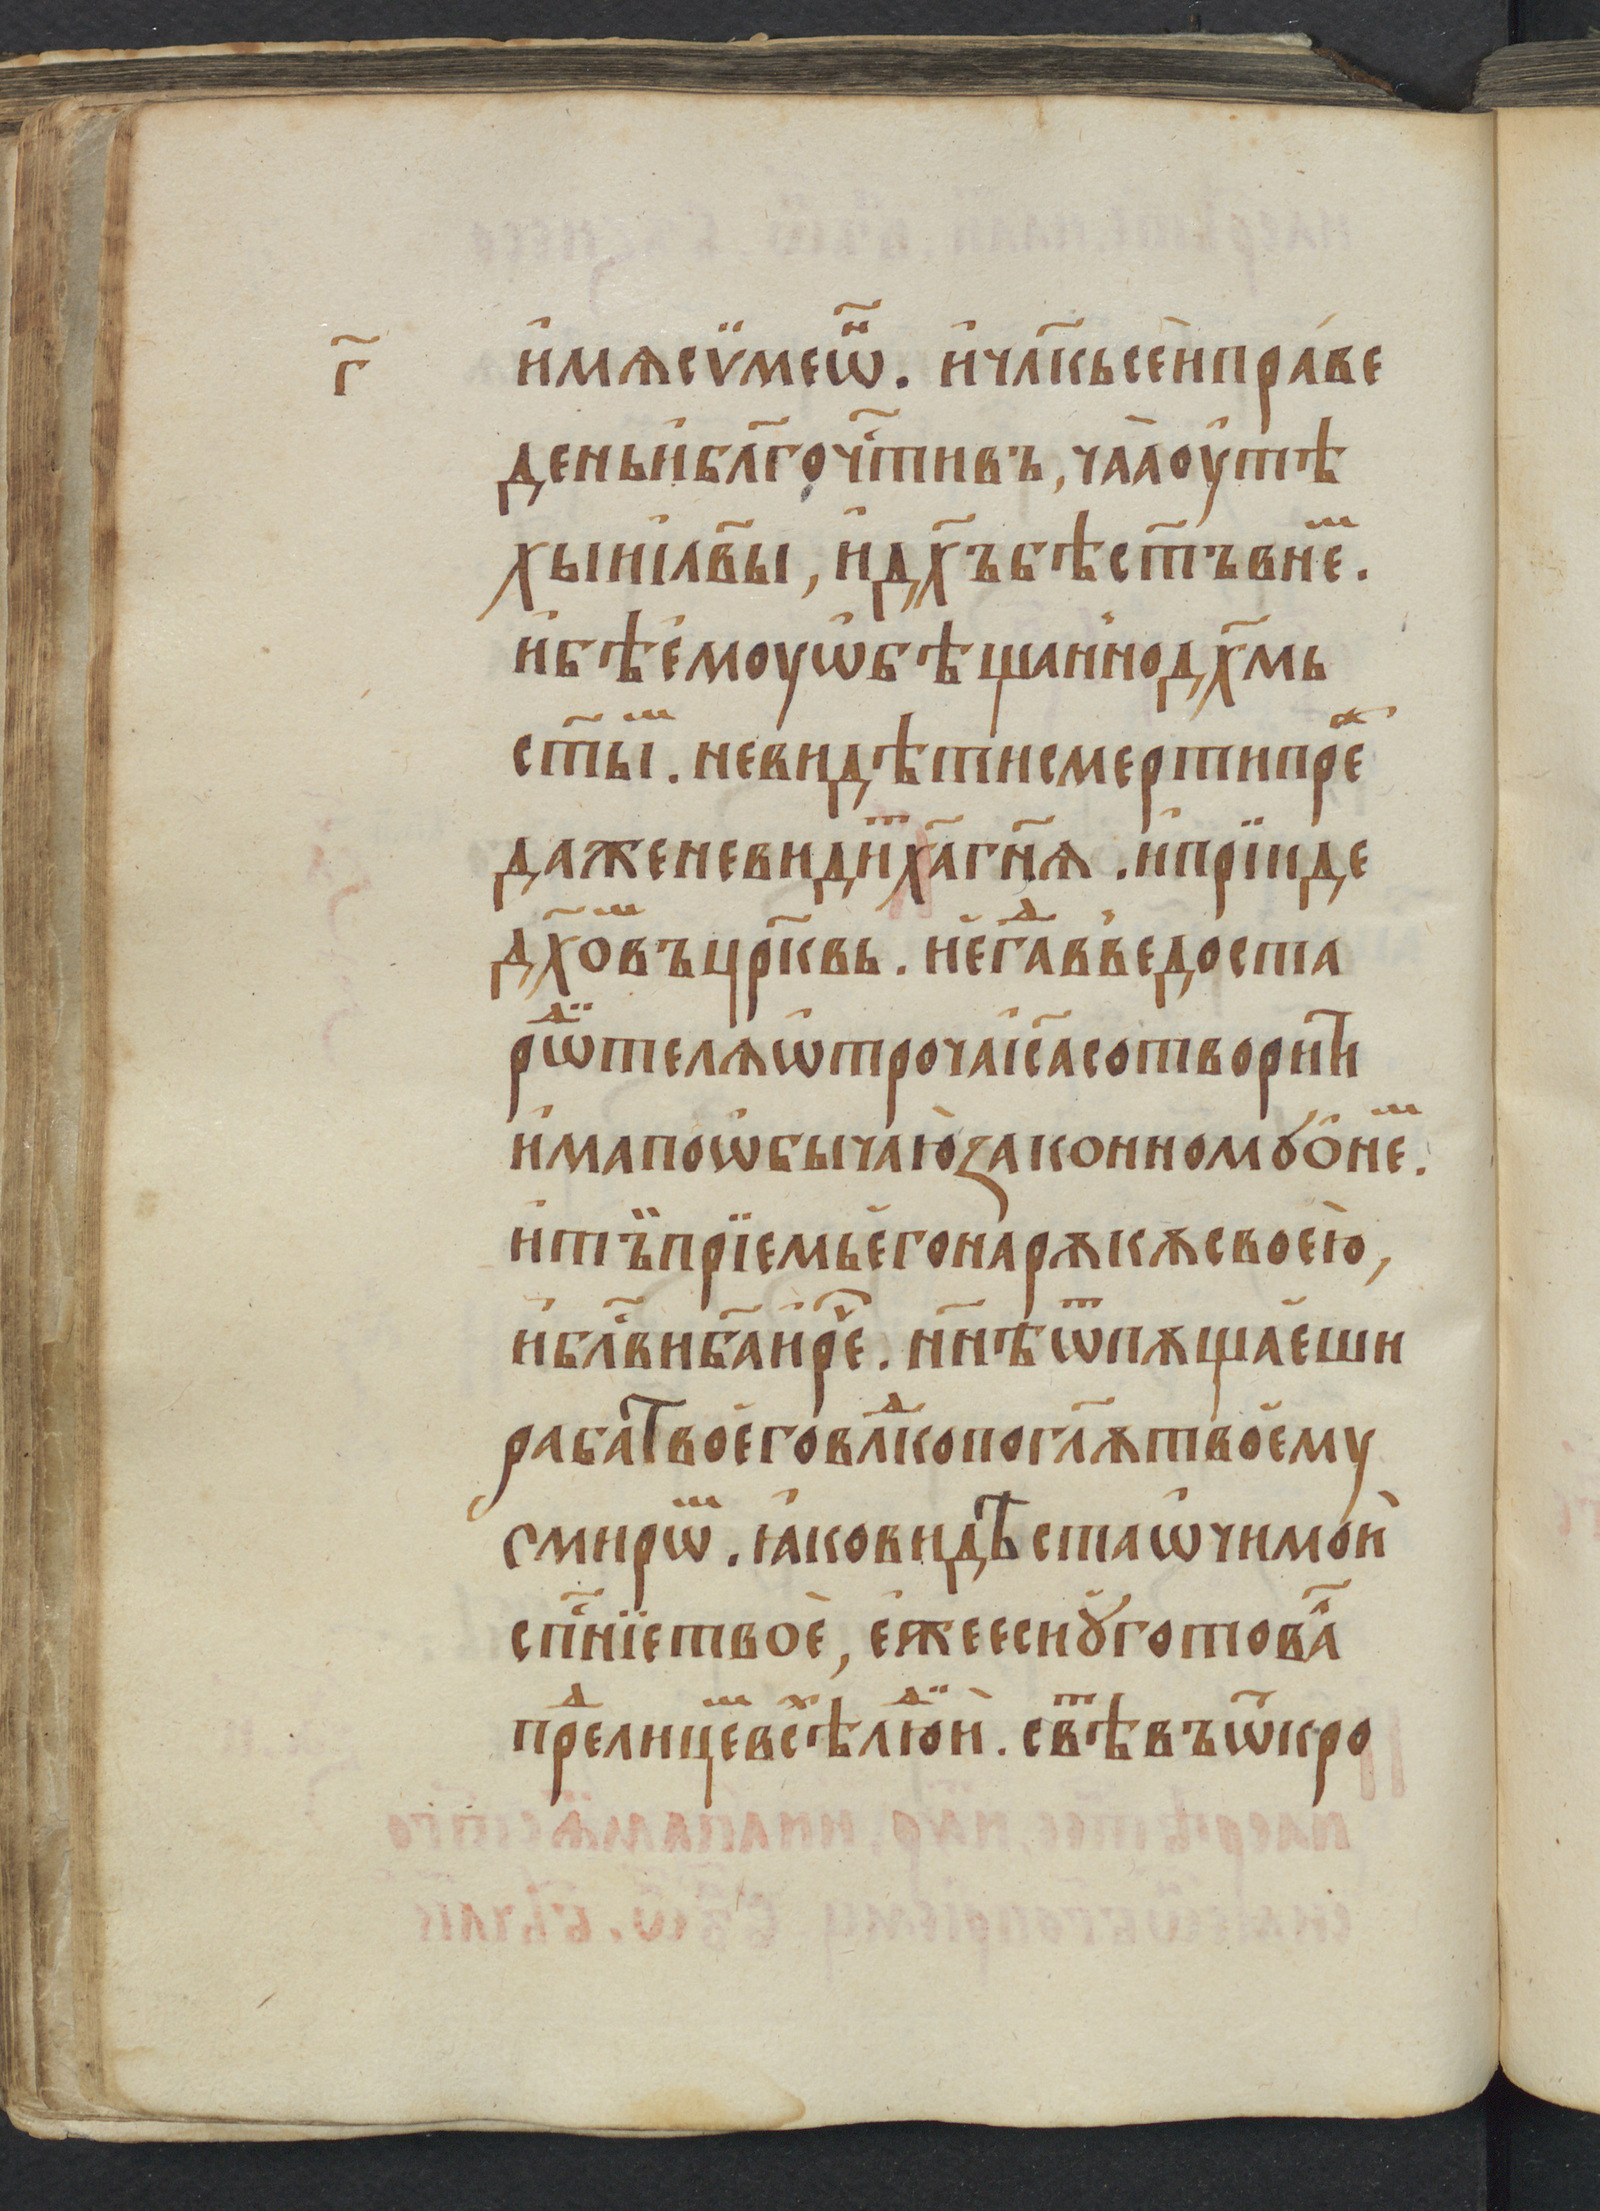 г҃
и҆мѧсѷмеѡ҃н . и҆чл҃кьсе́и҆пра́ве
деньи҆бл҃гоч҃тивъ, ча́аоу҆тѣ
хыиі҆л҃вы, и҆дх҃ъбѣст҃ъвне҃ⷨ.
и҆бѣе҆моуѡ҆бѣщанн҆одх҃мь
ст҃ыⷨ . невидѣтисмертипре҃ⷤ
даженевидиⷮх҃агн҃ѧ . и҆прїиде
дх҃оⷨвъцр҃квь . не҆гдⷶ҃ав̾ведоста
рѡⷣтелѧѡ҆трочаі҆с҃асотворити
и҆мапоѡ҆бычаю҆законномꙋѻ҆неⷨ.
и҆тъ̈прїемье҆гонарѫкѫсвоею̀,
и҆бл҃вибг҃аи҆ре҃ⷱ . нн҃ѣѿпѫщае҆ши
раба̀твое҆говлⷣ҃копогл҃ѫтвое҆му
смирѡⷨ . ꙗ҆ковидѣстаѡ҆чимои҆
сп҃нїетвоѐ, е҆жееси ꙋ҆готова҃ⷧ
преⷣлицеⷨвсѣⷯлюⷣи҆ . свѣⷮвъѿкро